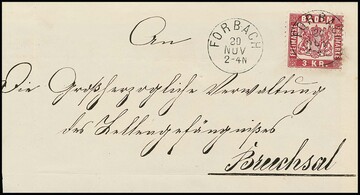 An
FORBACH
20
NOV
2-4N
BADEN
3 KR.
Die Großherzogliche Verwaltung
des Zellengefängnißes
Bruchsal